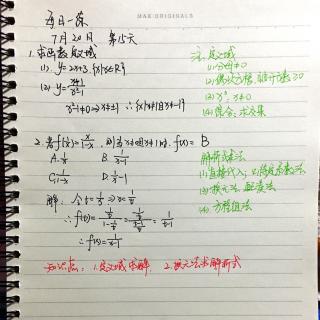 MAX·ORIGINALS
每日一练
7月20日 第15天
1.求函数定义域
(1) y=2x+3. {x|x∈R}
(2) y=(x+1)/(x²-1)
x²-1≠0⇒x≠±1 ∴{x|x≠1且x≠-1}
注:定义域
(1)分母≠0
(2)偶次方根,被开方数≥0
(3) x⁰,x≠0
(4)综合:求交集
2.若f(1/x)=x/(1-x),则当x≠0且x≠1时,f(x)=B
A.1/x B.1/(x-1)
C.1/(1-x) D.1/x-1
解:令t=1/x⇒x=1/t
∴f(t)=(1/t)/(1-1/t)=(1/t)/((t-1)/t)=1/(t-1)
∴f(x)=1/(x-1)
解析式求法
(1)直接代入;(2)待定系数法
(3)换元法、配凑法
(4)方程组法
知识点:1.定义域求解. 2.换元法求解析式